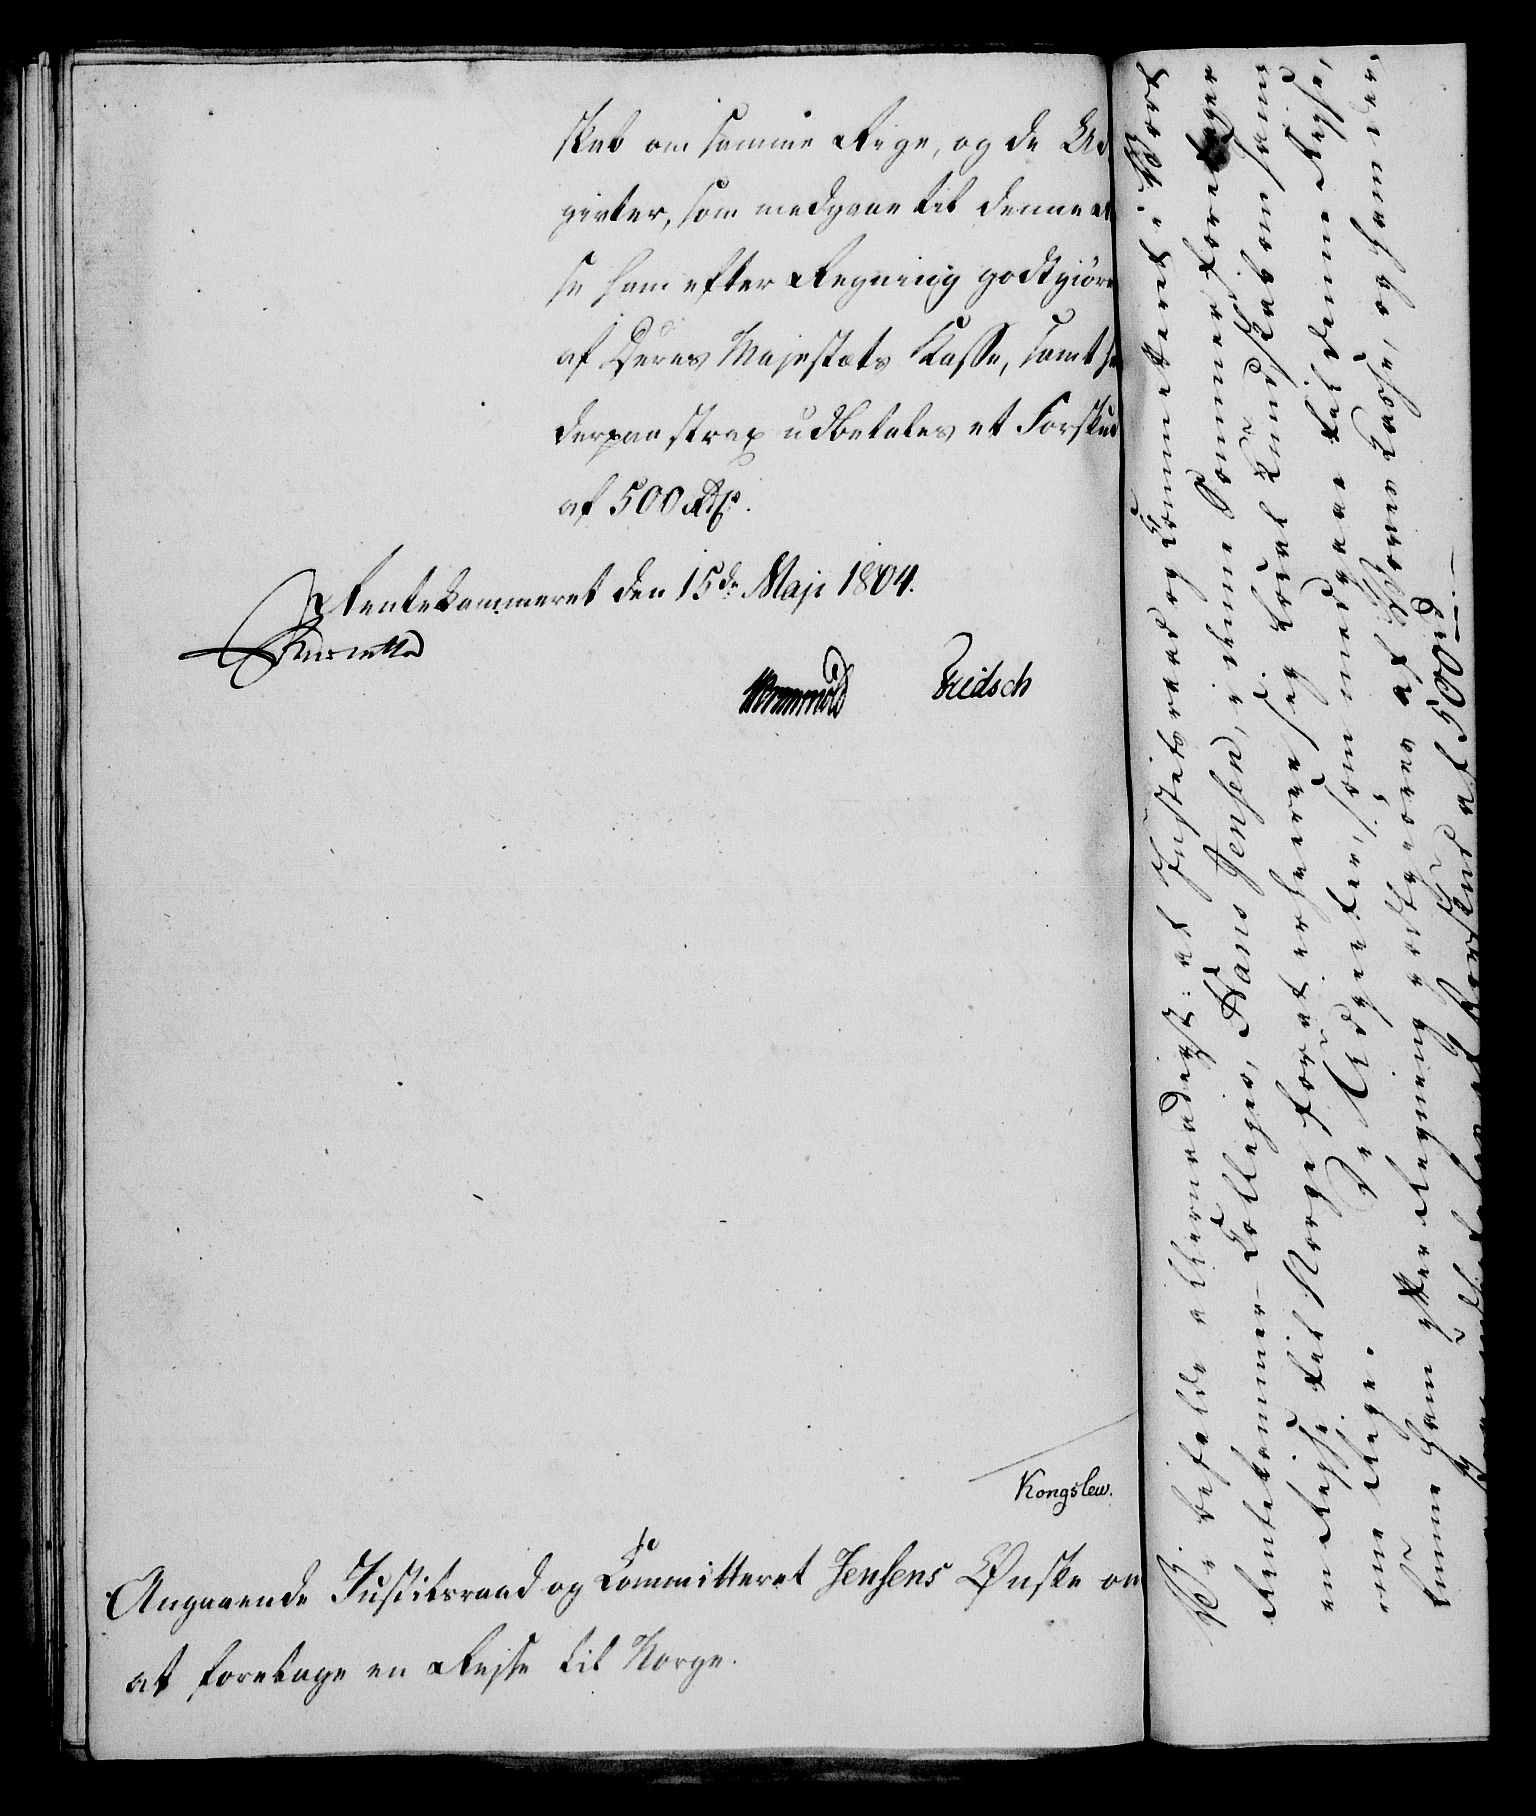 skab om samme Rige, og de Ud-
givter, som medgaae til denne
se ham efter Regning godtgiöres
af Deres Majestæts Kasse, samt
derpaa strax udbetales et Forskud
af 500 Rdr.
Rentekammeret den 15de Maji 1804.
Fridsch
Kongslew.
Angaaende Justitsraad og Committeret Jensens Ønske om
at foretage en Rejse til Norge.
Vi befalde allernaadigst: at Justitsraad og Committeret i Vort
Rentekammer-Collegio, Hans Jensen, i denne Sommer foretager
en Rejse til Norge for at erhverve sig local Kundskab om samme
Rige. De Udgifter, som medgaae til denne Rejse,
ham efter Regning godtgiöres af Vores Kasse, og ham der-
udbetales et Forskud af 500 rd